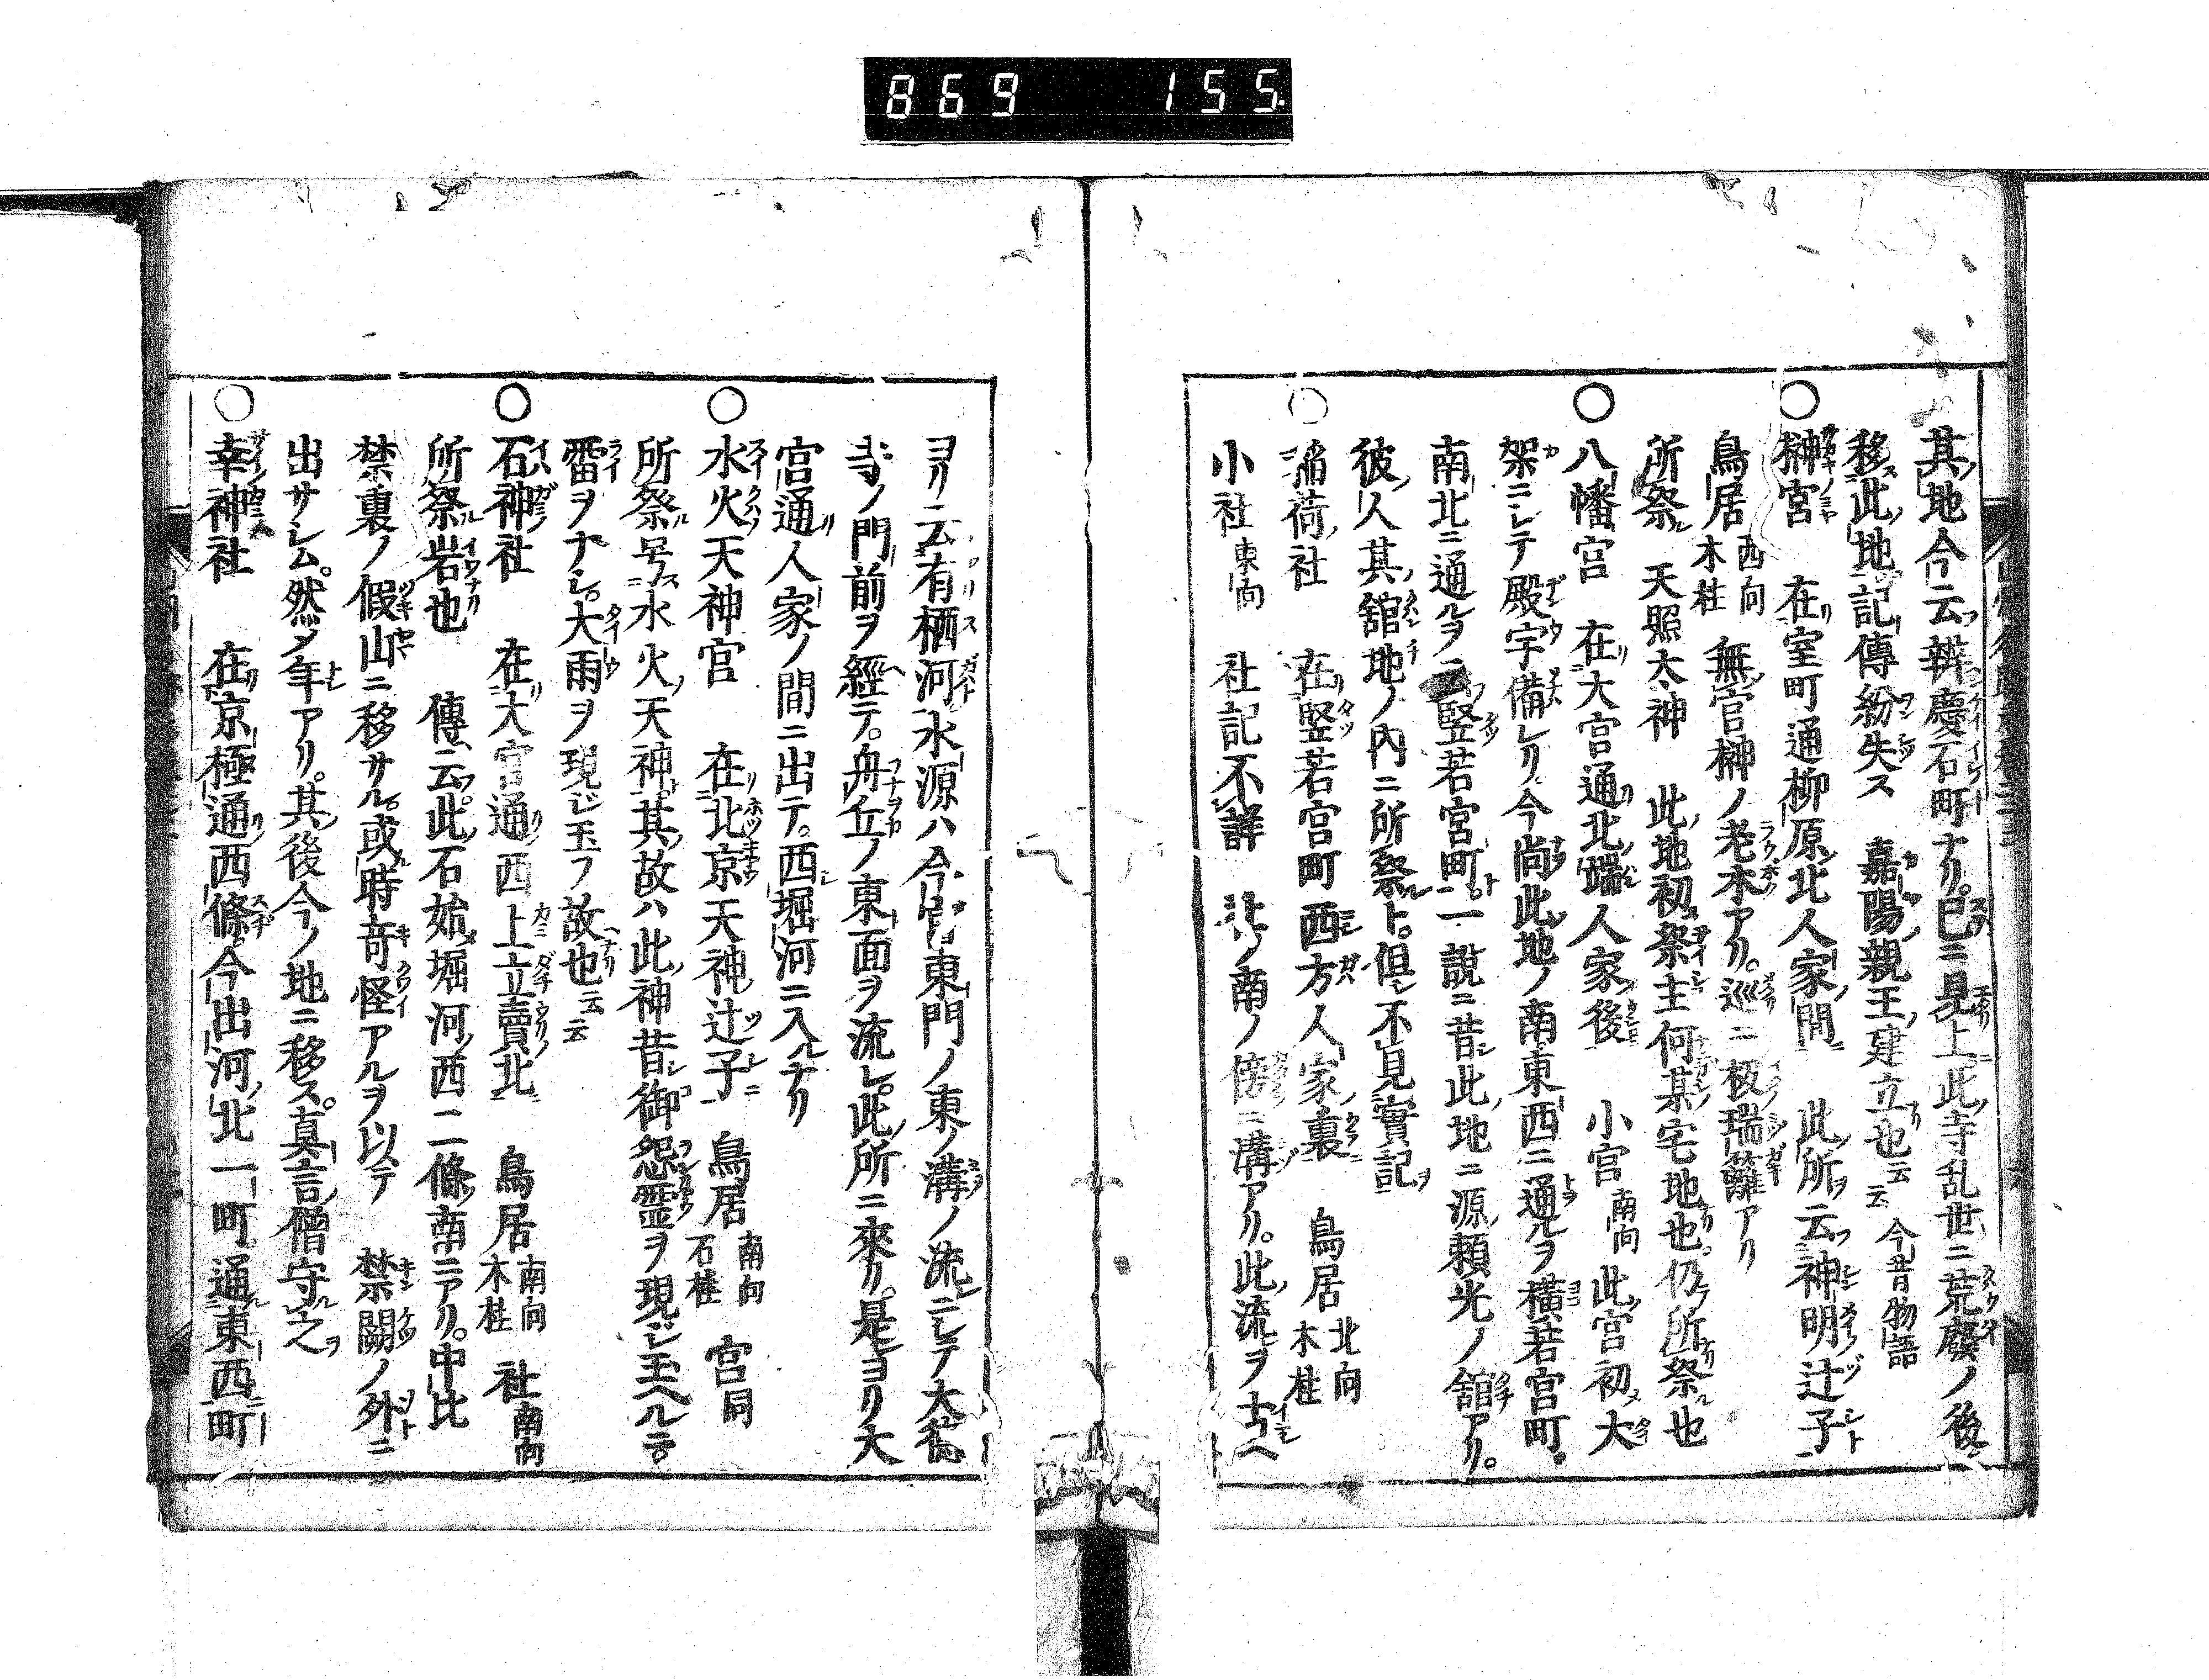 869 155
其地今云辨慶石町ナリ。巳ニ見上此寺乱世ニ荒廢ノ後
移此地記傳紛失ス 嘉陽親王建立也云云 今昔物語
○榊宮 在室町通柳原北人家間 此所ヲ云神明辻子
鳥居 西向 木柱 無宮榊ノ老木アリ。巡ニ板瑞籬アリ
所祭 天照太神 此地初祭主何某宅地也。仍所祭也
○八幡宮 在大宮通北端人家後 小宮 南向 此宮初大
架ニシテ殿宇備レリ今尚此地ノ南東西ニ通ルヲ橫若宮町。
南北ニ通ルヲ云竪若宮町。一說ニ昔此地ニ源頼光ノ舘アリ。
彼人其舘地ノ內ニ所祭ト。但不見實記
○稲荷社 在竪若宮町西方人家裏 鳥居 北向 木柱
小社 東向 社記不詳 社ノ南ノ傍ニ溝アリ。此流ヲ古ヘ
ヨリ云有栖河水源ハ今宮東門ノ東ノ溝ノ流ニシテ大德
寺ノ門前ヲ經テ。舟丘ノ東面ヲ流レ。此所ニ來リ。是ヨリ大
宮通人家ノ間ニ出テ。西堀河ニ入ルナリ
○水火天神宮 在北京天神辻子 鳥居 南向 石柱 宮同
所祭号水火天神。其故ハ此神昔御怨霊ヲ現ジ玉ヘル時。
雷ヲナシ。大雨ヲ現ジ玉フ故也云云
○石神社 在大宮通西上立賣北 鳥居 南向 木柱 社 南向
所祭岩也 傳云。此石始堀河西二條南ニアリ。中比
禁裏ノ假山ニ移サル。或時竒怪アルヲ以テ 禁闕ノ外ニ
出サシム。然ノ年アリ。其後今ノ地ニ移ス。真言僧守之
○幸神社 在京極通西條今出河北一町通東西町